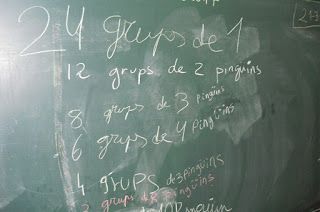 24 grups de 1
12 grups de 2 pingüins
8 grups de 3 pingüins
6 grups de 4 pingüins
4 grups de 3 pingüins
grups de pingüins